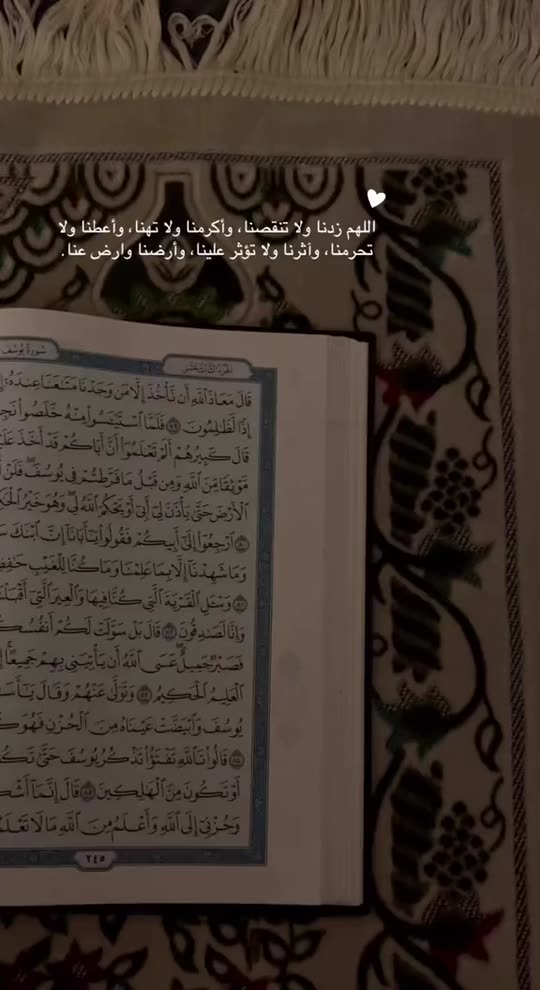 اللهم زدنا ولا تنقصنا، وأكرمنا ولا تهنا، وأعطنا ولا
تحرمنا، وآثرنا ولا تؤثر علينا، وأرضنا وارض عنا.
سُورَةُ يُوسُفَ الجُزْءُ الثَّالِثَ عَشَرَ
قَالَ مَعَاذَ ٱللَّهِ أَن نَّأۡخُذَ إِلَّا مَن وَجَدۡنَا مَتَٰعَنَا عِندَهُۥٓ
إِذٗا لَّظَٰلِمُونَ ٧٩ فَلَمَّا ٱسۡتَيۡـَٔسُواْ مِنۡهُ خَلَصُواْ
قَالَ كَبِيرُهُمۡ أَلَمۡ تَعۡلَمُوٓاْ أَنَّ أَبَاكُمۡ قَدۡ أَخَذَ
مَّوۡثِقٗا مِّنَ ٱللَّهِ وَمِن قَبۡلُ مَا فَرَّطتُمۡ فِي يُوسُفَۖ فَلَنۡ
ٱلۡأَرۡضَ حَتَّىٰ يَأۡذَنَ لِيٓ أَبِيٓ أَوۡ يَحۡكُمَ ٱللَّهُ لِيۖ وَهُوَ خَيۡرُ
٨٠ ٱرۡجِعُوٓاْ إِلَىٰٓ أَبِيكُمۡ فَقُولُواْ يَٰٓأَبَانَآ إِنَّ ٱبۡنَكَ
وَمَا شَهِدۡنَآ إِلَّا بِمَا عَلِمۡنَا وَمَا كُنَّا لِلۡغَيۡبِ
٨١ وَسۡـَٔلِ ٱلۡقَرۡيَةَ ٱلَّتِي كُنَّا فِيهَا وَٱلۡعِيرَ ٱلَّتِيٓ
وَإِنَّا لَصَٰدِقُونَ ٨٢ قَالَ بَلۡ سَوَّلَتۡ لَكُمۡ
فَصَبۡرٞ جَمِيلٌۖ عَسَى ٱللَّهُ أَن يَأۡتِيَنِي بِهِمۡ جَمِيعًاۚ
ٱلۡعَلِيمُ ٱلۡحَكِيمُ ٨٣ وَتَوَلَّىٰ عَنۡهُمۡ وَقَالَ
يُوسُفَ وَٱبۡيَضَّتۡ عَيۡنَاهُ مِنَ ٱلۡحُزۡنِ فَهُوَ
٨٤ قَالُواْ تَٱللَّهِ تَفۡتَؤُاْ تَذۡكُرُ يُوسُفَ حَتَّىٰ
أَوۡ تَكُونَ مِنَ ٱلۡهَٰلِكِينَ ٨٥ قَالَ إِنَّمَآ
وَحُزۡنِيٓ إِلَى ٱللَّهِ وَأَعۡلَمُ مِنَ ٱللَّهِ مَا لَا
٢٤٥